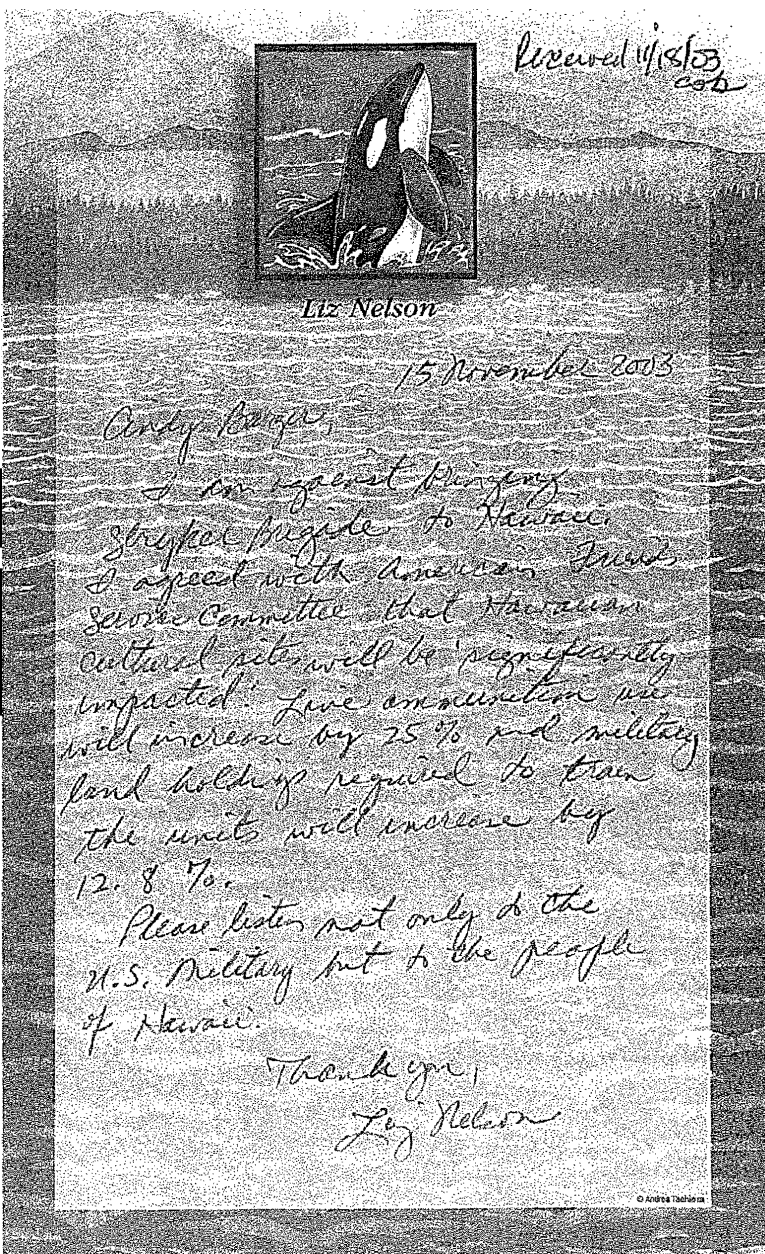 Received 11/18/03
Liz Nelson
15 November 2003
Andy
I am against bringing
Stryker Brigade to Hawaii.
I agreed with American Friends
Service Committee that Hawaiian
cultural sites will be 'significantly
impacted.' Live ammunition use
will increase by 25% and military
land holdings required to train
the units will increase by
12.8%.
Please listen not only to the
U.S. Military but to the people
of Hawaii.
Thank you,
Liz Nelson